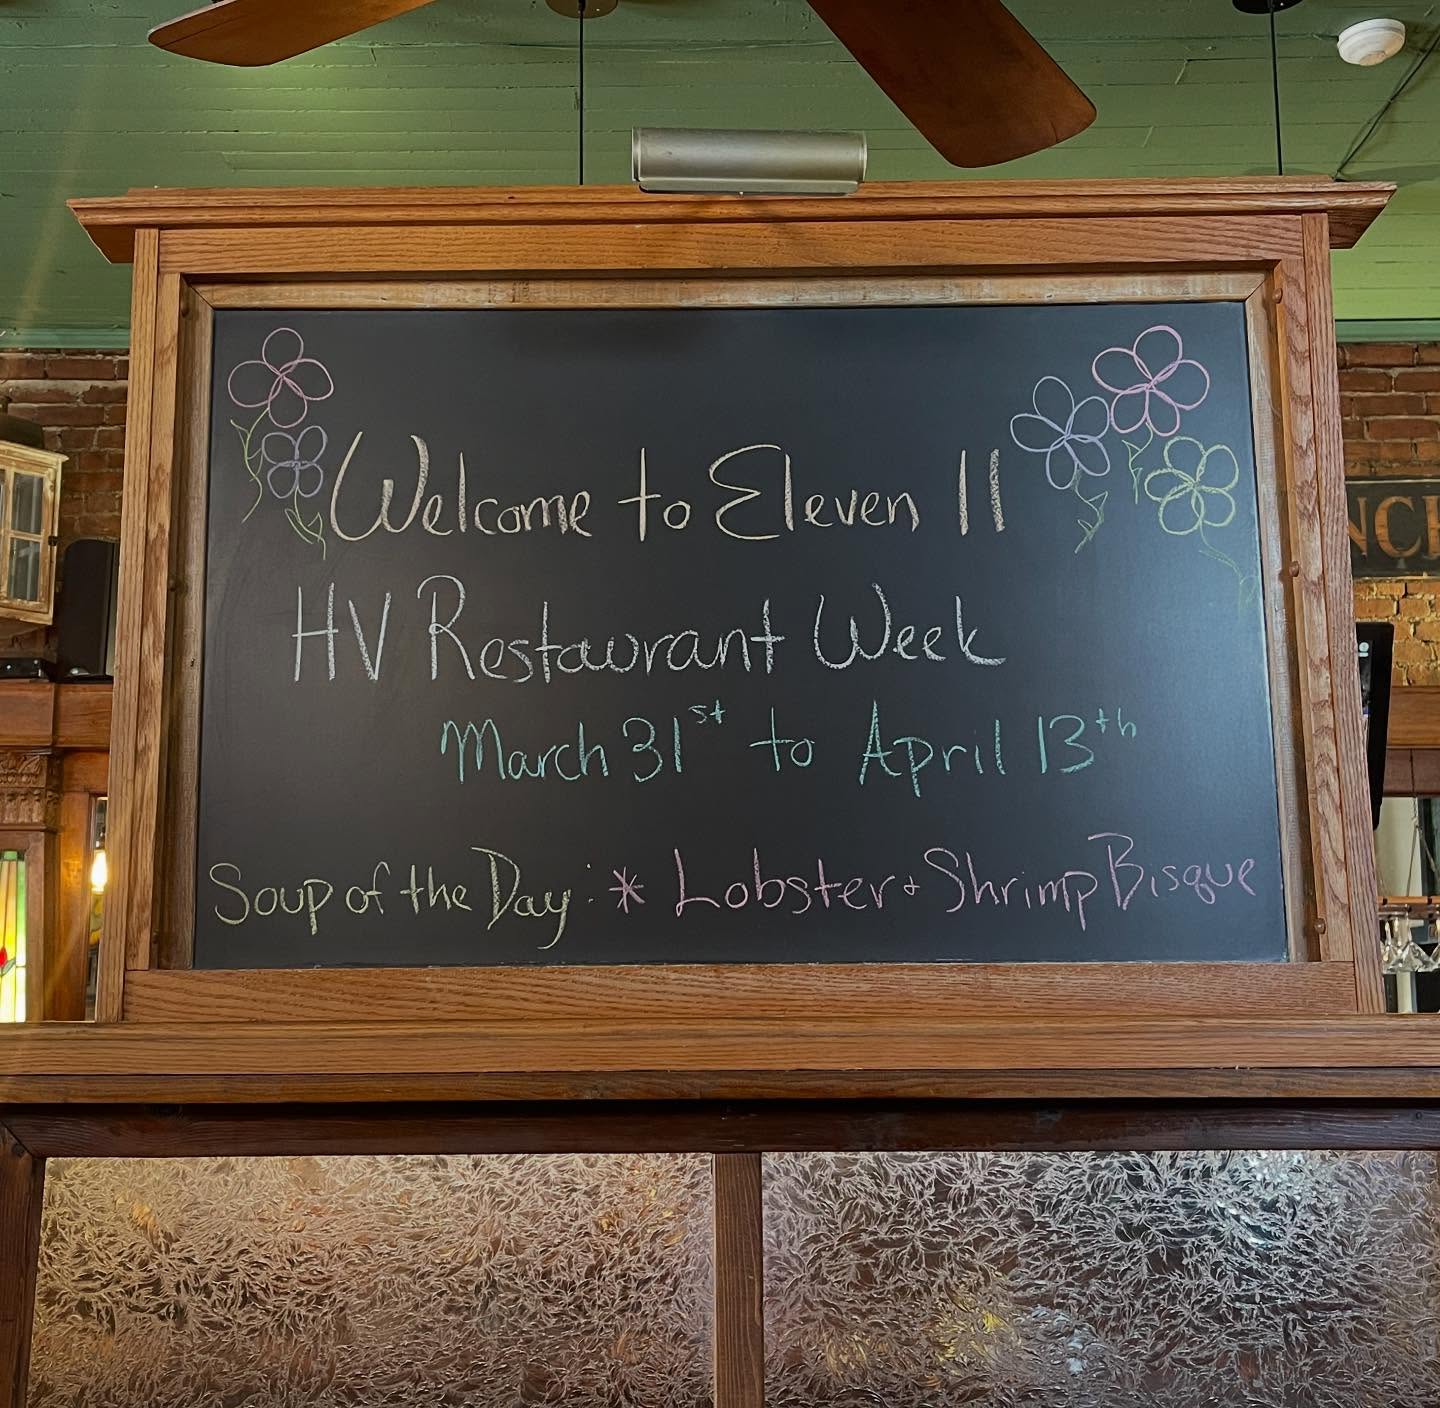 Welcome to Eleven 11
HV Restaurant Week
March 31st to April 13th
Soup of the Day: * Lobster + Shrimp Bisque